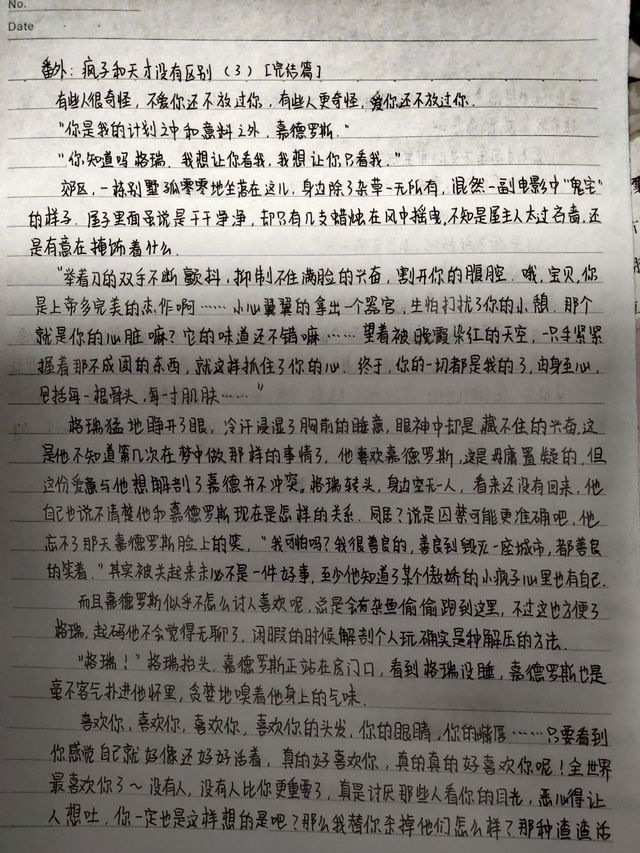 No.
Date
番外：疯子和天才没有区别（3）[完结篇]
有些人很奇怪，不爱你还不放过你，有些人更奇怪，爱你还不放过你.
"你是我的计划之中和意料之外，嘉德罗斯."
"你知道吗格瑞，我想让你看我，我想让你只看我."
郊区，一栋别墅孤零零地坐落在这儿.身边除了杂草一无所有，混然一副电影中"鬼宅"
的样子.屋子里面虽说是干干净净，却只有几支蜡烛在风中摇曳，不知是屋主人太过吝啬，还
是有意在掩饰着什么.
"举着刀的双手不断颤抖，抑制不住满脸的兴奋，割开你的腹腔.哦，宝贝，你
是上帝多完美的杰作啊……小心翼翼的拿出一个器官，生怕打扰了你的小憩.那个
就是你的心脏嘛？它的味道还不错嘛……望着被晚霞染红的天空，一只手紧紧
握着那不成团的东西，就这样抓住了你的心.终于，你的一切都是我的了，由身至心，
包括每一根骨头，每一寸肌肤……"
格瑞猛地睁开了眼，冷汗浸湿了胸前的睡意，眼神中却是藏不住的兴奋，这
是他不知道第几次在梦中做那样的事情了，他喜欢嘉德罗斯，这是毋庸置疑的，但
这份爱意与他想解剖了嘉德并不冲突。格瑞转头，身边空无一人，看来还没有回来，他
自己也说不清楚他和嘉德罗斯现在是怎样的关系.同居？说是囚禁可能更准确吧，他
忘不了那天嘉德罗斯脸上的笑，"我可怕吗？我很善良的，善良到毁灭一座城市，都善良
的笑着."其实被关起来未必不是一件好事，至少他知道了某个傲娇的小疯子心里也有自己.
而且嘉德罗斯似乎不怎么讨人喜欢呢，总是会有杂鱼偷偷跑到这里，不过这也方便了
格瑞，起码他不会觉得无聊了，闲暇的时候解剖个人玩确实是种解压的方法.
"格瑞！"格瑞抬头，嘉德罗斯正站在房门口，看到格瑞没睡，嘉德罗斯也是
毫不客气扑进他怀里，贪婪地嗅着他身上的气味.
喜欢你，喜欢你，喜欢你，喜欢你的头发，你的眼睛，你的嘴唇……只要看到
你感觉自己就好像还好好活着，真的好喜欢你，真的真的好喜欢你呢！全世界
最喜欢你了～没有人，没有人比你更重要了，真是讨厌那些人看你的目光，恶心得让
人想吐，你一定也是这样想的是吧？那么我替你杀掉他们怎么样？那种渣渣活